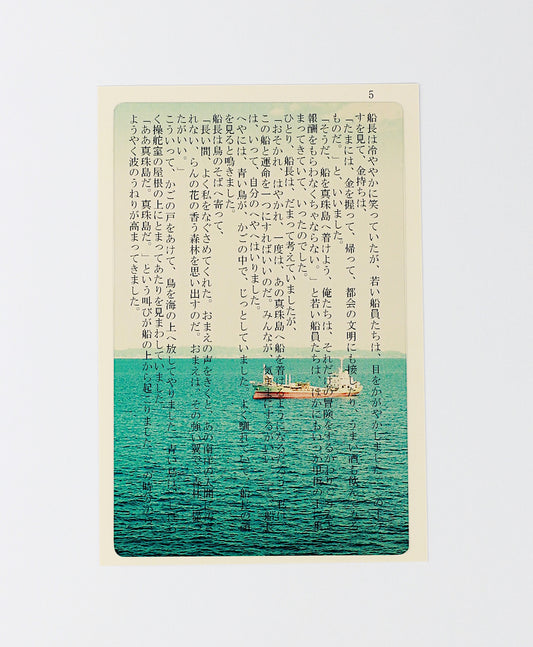 5
船長は冷ややかに笑っていたが、若い船員たちは、目をかがやかしました
すを見て、金持ちは、
「たまには、金を握って、帰って、都会の文明にも接し
ものだ。」と、いいました。
「そうだ、船を真珠島へ着けよう、俺たちは、それだけの冒険をする
報酬をもらわなくちゃならない。」と若い船員たちは、ほかにもいつか
まってきていて、いったのでした。
ひとり、船長は、だまって考えていましたが、
「おそかれ、はやかれ、一度は、あの真珠島へ船を着けるようになる
この船と運命を一つにすればいいのだ。みんなが、気ままにするがいい
は、いって、自分のへやへはいりました。
へやには、青い鳥が、かごの中で、じっとしていました。よく馴れて
を見ると鳴きました。
船長は鳥のそばへ寄って、
「長い間、よく私をなぐさめてくれた。おまえの声をきくと、あの南洋の
れない、らんの花の香う森林を思い出すのだ。おまえは、その強い翼で
たがいい。」
こういって、かごの戸をあけて、鳥を海の上へ放してやりました。青い鳥は、
く操舵室の屋根の上にとまってあたりを見まわしていました
「ああ真珠島だ。真珠島だ。」という叫びが船の上から起こりました。
ようやく波のうねりが高まってきました。